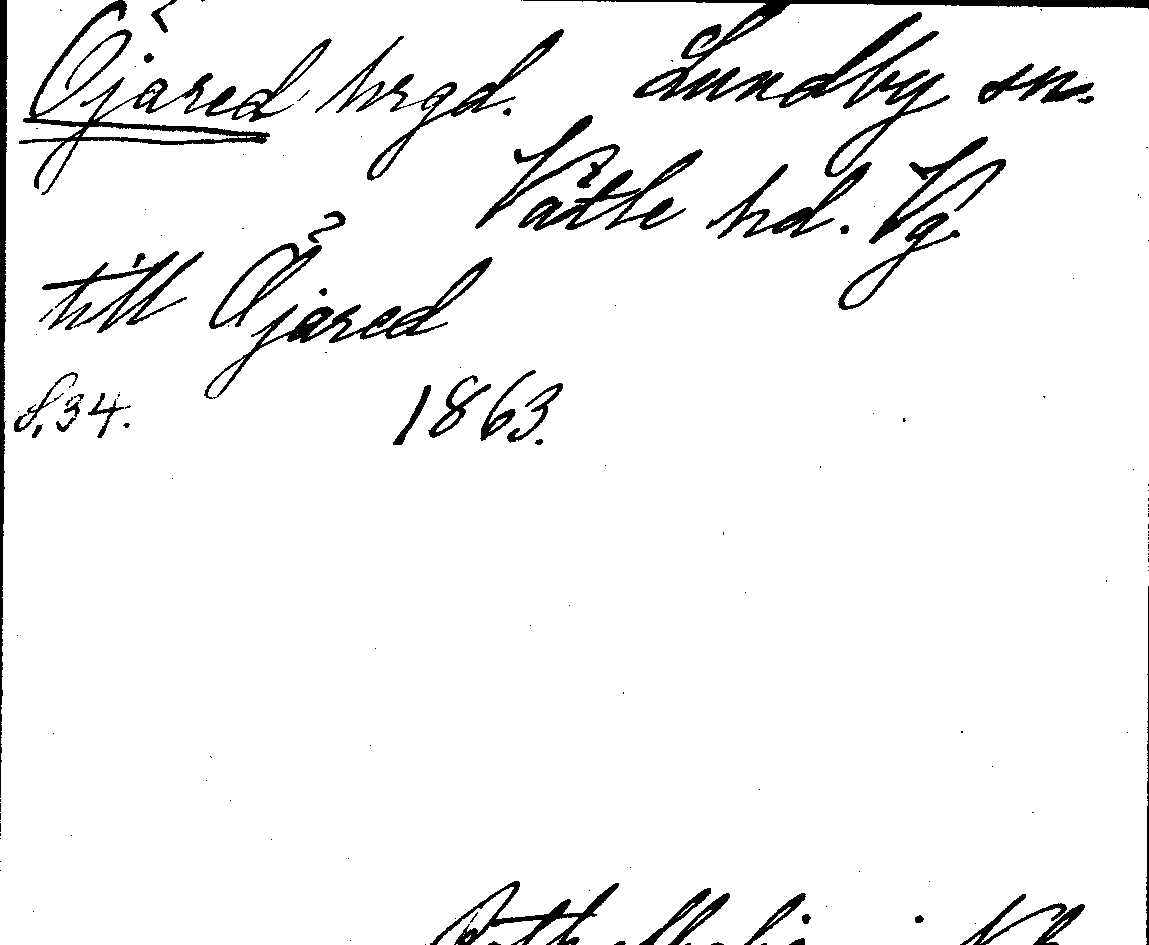 Öjared hrgd. Lundby sn.
Vättle hd. Vg.
till Öjared
s. 34. 1863.